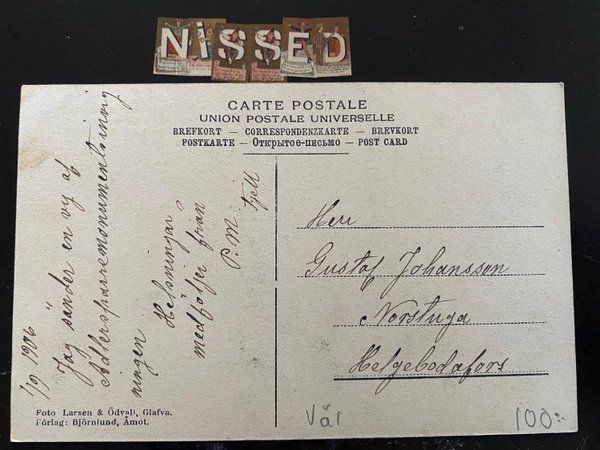 NiSSED
CARTE POSTALE
UNION POSTALE UNIVERSELLE
BREFKORT — CORRESPONDENZKARTE — BREVKORT
POSTKARTE — Открытое-письмо — POST CARD
1/9 1906
Jag sänder en vy af
Adlersparremonumentsinvig
ningen Helsningar
medföljer från
P. M. Fjell
Herr
Gustaf Johanssen
Norstuga
Helgebodafors
Foto Larsen & Ödvall, Glafva.
Förlag: Björnlund, Åmot.
Vär
100:-